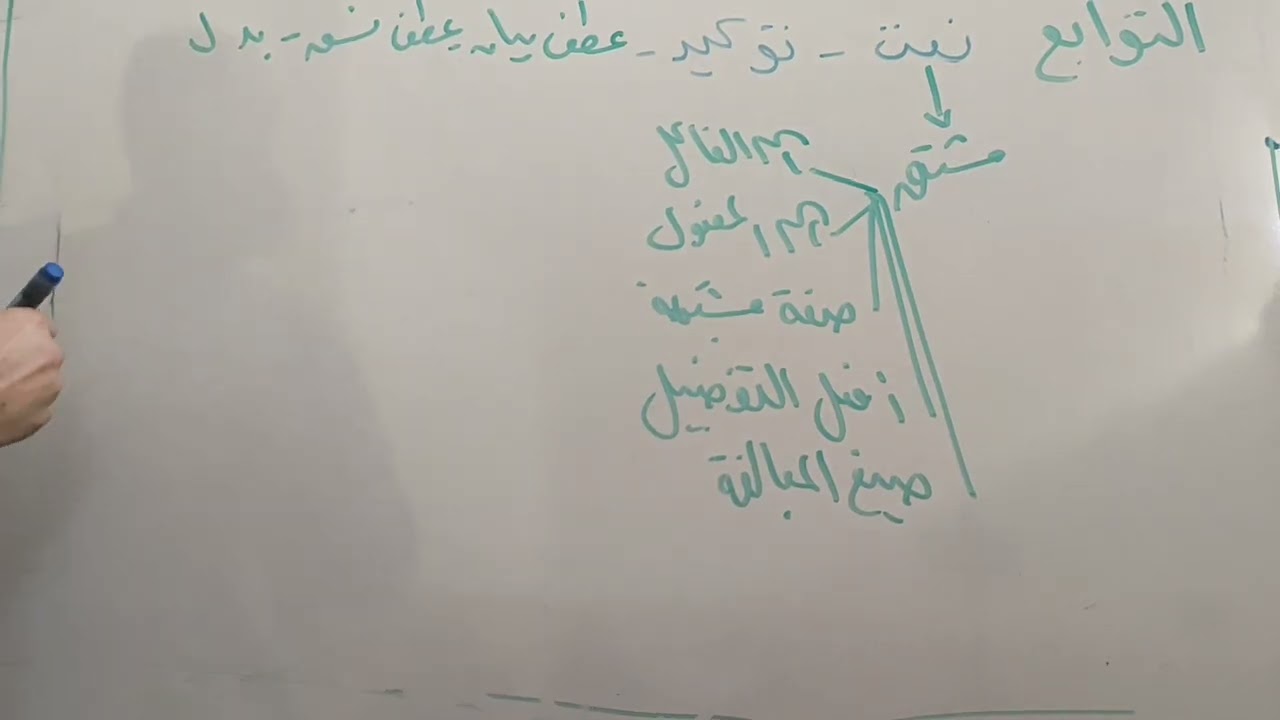 التوابع نعت - توكيد - عطف بيان - عطف نسق - بدل
مشتق
اسم الفاعل
اسم المفعول
صفة مشبهة
أفعل التفضيل
صيغ المبالغة